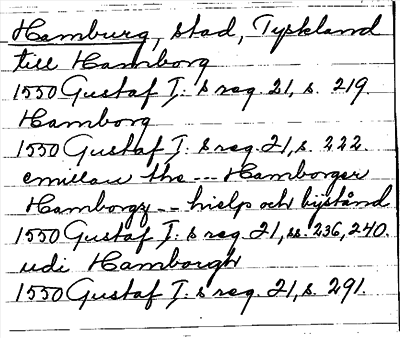 Hamburg, stad, Tyskland
till Hamborg
1550 Gustaf I: s reg. 21, s. 219.
Hamborg
1550 Gustaf I: s reg. 21, s. 222.
emillan the --- Hamborger
Hamborgz -- hielp och bijstånd
1550 Gustaf I: s reg. 21, ss. 236, 240.
udi Hamborgh
1550 Gustaf I: s reg. 21, s. 291.